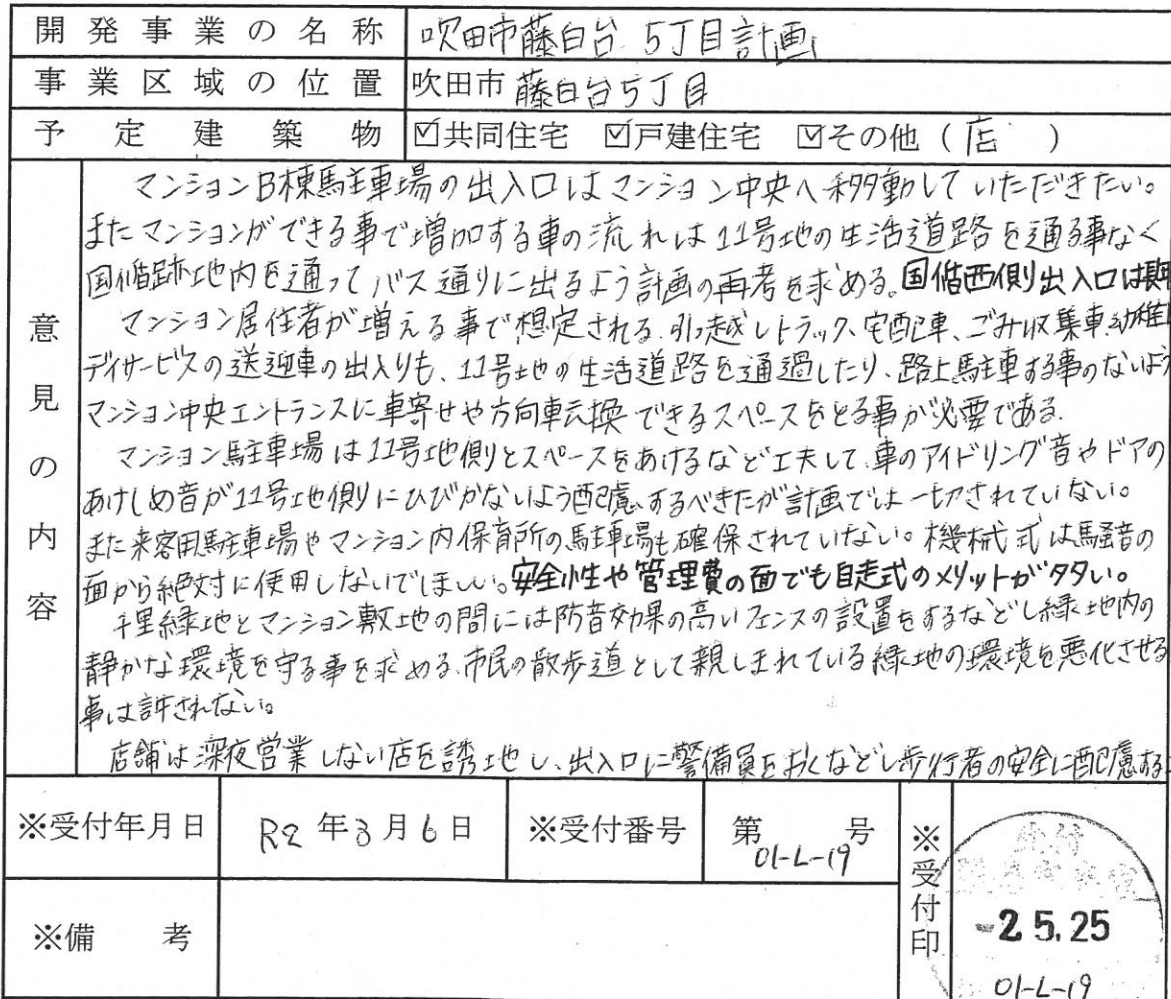 開発事業の名称 吹田市藤白台5丁目計画
事業区域の位置 吹田市藤白台5丁目
予定建築物 ☑共同住宅 ☑戸建住宅 ☑その他(店)
意見の内容
マンションB棟駐車場の出入口はマンション中央へ移動していただきたい。
またマンションができる事で増加する車の流れは11号地の生活道路を通る事なく
国循跡地内を通ってバス通りに出るよう計画の再考を求める。国循西側出入口は
マンション居住者が増える事で想定される、引っ越しトラック、宅配車、ごみ収集車、幼稚
デイサービスの送迎車の出入りも、11号地の生活道路を通過したり、路上駐車する事のないよう
マンション中央エントランスに車寄せや方向転換できるスペースをとる事が必要である。
マンション駐車場は11号地側とスペースをあけるなど工夫して、車のアイドリング音やドアの
あけしめ音が11号地側にひびかないよう配慮するべきだが計画では一切されていない。
また来客用駐車場やマンション内保育所の駐車場も確保されていない。機械式は騒音の
面から絶対に使用しないでほしい。安全性や管理費の面でも自走式のメリットが多い。
千里緑地とマンション敷地の間には防音効果の高いフェンスの設置をするなどし緑地内の
静かな環境を守る事を求める。市民の散歩道として親しまれている緑地の環境を悪化させる
事は許されない。
店舗は深夜営業しない店を誘地し、出入口に警備員をおくなどし歩行者の安全に配慮する
※受付年月日 R2年3月6日 ※受付番号 第 号
01-L-19
※受付印
※備考
-2.5.25
01-L-19